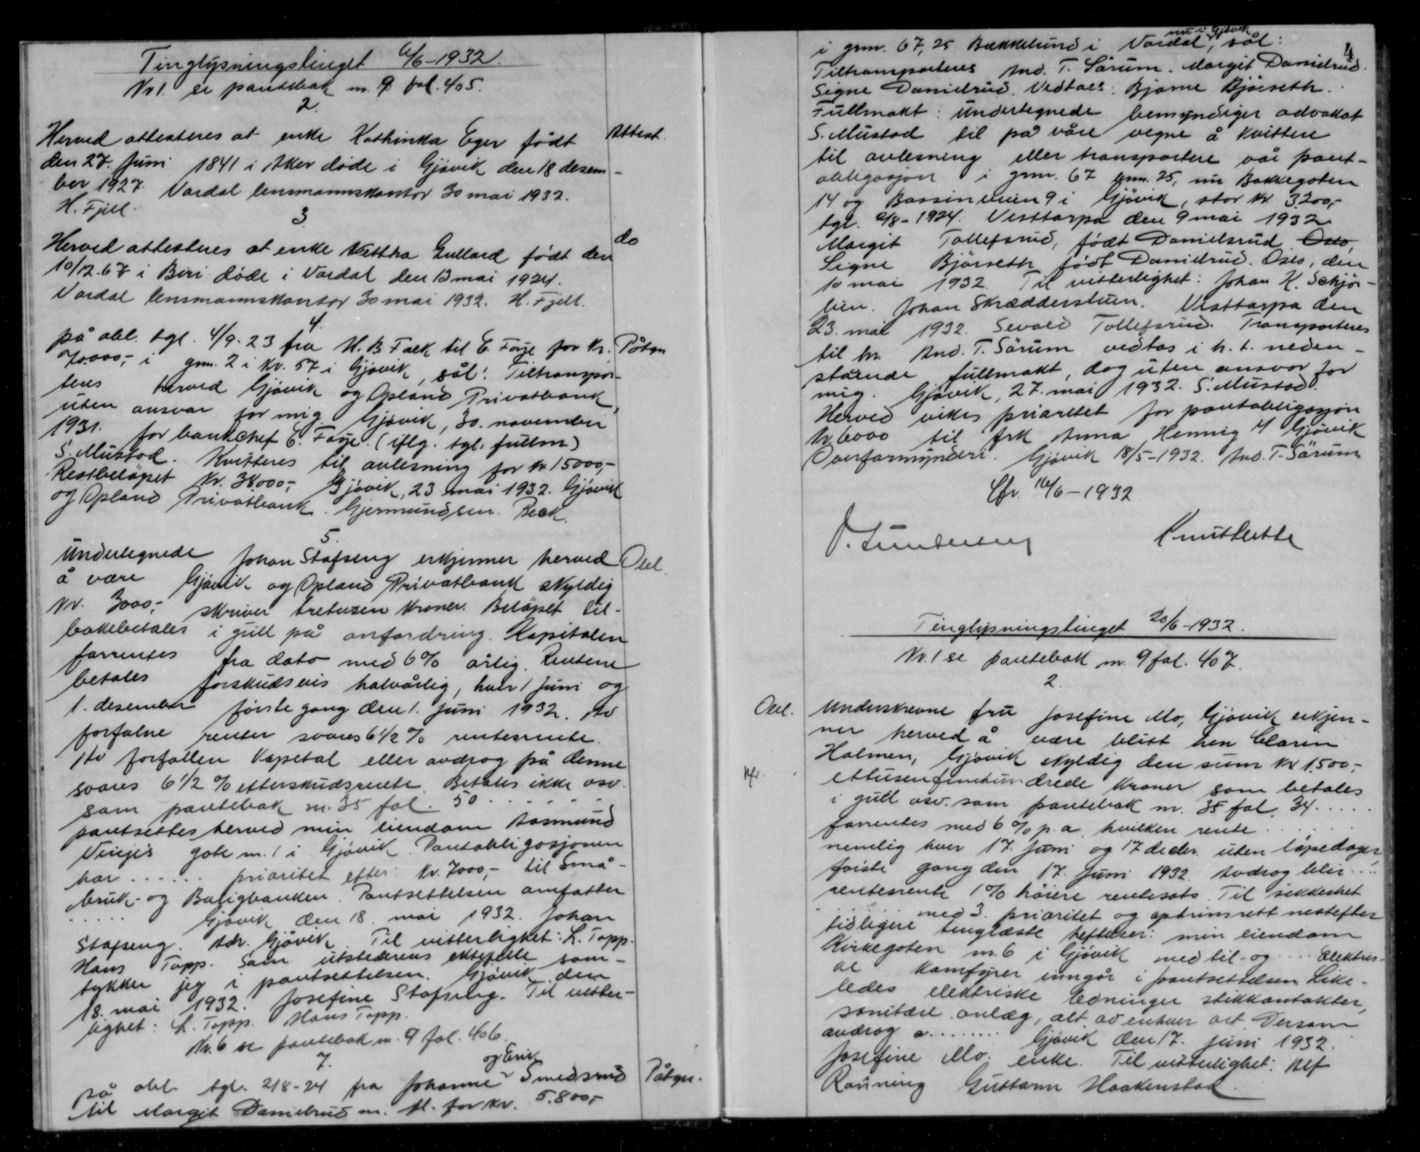 Tinglysningstinget 6/6-1932.
Nr 1. se pantebok nr. 9 fol. 405.
2
Herved attesteres at enke Kathinka Eger født Attest.
den 27. juni 1841 i Aker døde i Gjøvik den 18 desem-
ber 1927. Vardal lensmannskontor 30 mai 1932.
H. Fjell.
3
Herved attesteres at enke Gullord født den do
10/12.67 i Biri døde i Vardal den 13 mai 1924.
Vardal lensmannskontor 30 mai 1932. H. Fjell.
4.
på obl. tgl. 4/9-23 fra H.B. Falk til E. Faye for kr. Påtgn
70000,- i grnr. 2 i kv. 57 i Gjøvik, sål: Tiltranspor-
teres herved Gjøvik og Opland Privatbank,
uten ansvar for mig. Gjøvik, 30. november
1931. for bankchef E. Faye. (iflg. tgl. fullm)
S. Mustad. Kvitteres til avlesning for kr 15000,-
Restbeløpet kr. 38000,- Gjøvik, 23 mai 1932. Gjøvik
og Opland Privatbank. Gjermundsen. Beck.
5.
Undertegnede Johan Stafseng erkjenner herved Obl.
å være Gjøvik og Opland Privatbank skyldig
kr. 3000,- skriver tretusen kroner. Beløpet til-
bakebetales i gull på anfordring. Kapitalen
forrentes fra dato med 6% årlig. Rentene
betales forskudsvis halvårlig, hver 1 juni og
1. desember første gang den 1. juni 1932. Av
forfalne renter svares 6½ % rentesrente.
Av forfallen kapital eller avdrag på denne
svares 6 1/2 % etterskudsrente. Betales ikke osv.
som pantebok nr. 35 fol. 50 . . . . . .
pantsettes herved min eiendom Aasmund
Vinjes gate nr. 1 i Gjøvik. Pantobligasjonen
har . . . . . . prioritet efter: kr. 7000,- til Små-
bruk- og Boligbanken. Pantsettelsen omfatter
. . . . . Gjøvik den 18. mai 1932. Johan
Stafseng. Adr. Gjøvik. Til vitterlighet: L. Topp.
Hans Topp. Som utstederens ektefelle sam-
tykker jeg i pantsettelsen. Gjøvik den
18. mai 1932. Josefine Stafseng. Til vitter-
lighet: L. Topp. Hans Topp.
Nr. 6 se pantebok nr. 9 fol. 406.
7.
på obl. tgl. 2/8-24 fra Johanne og Smedsrud Påtgn.
til Margit Danielsrud m. fl. for kr. 5.800,-
4
i grnr. 67, 25 Bakkelund i Vardal, nu i Gjøvik, sål:
Tiltransporteres And. T. Sørum. Margit Danielsrud.
Signe Danielsrud. Vedtaes: Bjarne Bjørseth.
Fullmakt: Undertegnede bemyndiger advokat
S. Mustad til på våre vegne å kvittere
til avlesning eller transportere vår pant-
obligasjon i grnr. 67 brnr. 25, nu Bakkegaten
14 og Bassinveien 9 i Gjøvik, stor kr 3200,-
tgl. 2/8-1924. Vesttorpa den 9 mai 1932.
Margit Tollefsrud, født Danielsrud. Oslo,
Signe Bjørseth født Danielsrud. Oslo, den
10 mai 1932. Til vitterlighet: Johan K. Schjør-
lien. Johan Skrædderstuen. Vesttorpa den
23. mai 1932. Sevald Tollefsrud. Transporteres
til hr And. T. Sørum vedtas i h. t. neden-
stående fullmakt, dog uten ansvar for
mig. Gjøvik, 27. mai 1932. S. Mustad.
Herved vikes prioritet for pantobligasjon
kr 6000 til frk Anna Hennig Gjøvik
Overformynderi. Gjøvik 18/5-1932. And. T. Sørum
Cfr. 16/6-1932
Tinglysningstinget 20/6-1932.
Nr. 1 se pantebok nr 9 fol. 407.
2.
Obl. Underskrevne fru Josefine Mo, Gjøvik erkjen-
ner herved å være blitt hen Claren
Holmen, Gjøvik skyldig den sum kr 1500,-
ettusenfemhundrede kroner som betales
i gull osv. som pantebok nr. 35 fol. 34 . . . . .
forrentes med 6 % p.a. hvilken rente . . . . .
nemlig hver 17. juni og 17 decbr. uten løpedager,
første gang den 17. juni 1932. Avdrag blir . . .
rentesrente 1% høiere rentesats. Til sikkerhet
. . . . . . med 3. prioritet og oprinsrett nestefter
tidligere tinglæste heftelser: min eiendom
Kirkegaten nr. 6 i Gjøvik med til- og . . . . Elektris-
ke komfyrer inngår i pantsettelsen Like-
ledes elektriske ledninger stikkontakter,
sanitære anlæg, alt av enhver art. Dersom
avdrag o. . . . . . . . Gjøvik den 17. juni 1932.
Josefine Mo. enke. Til vitterlighet: Alf
Rønning Guttorm Haakenstad.